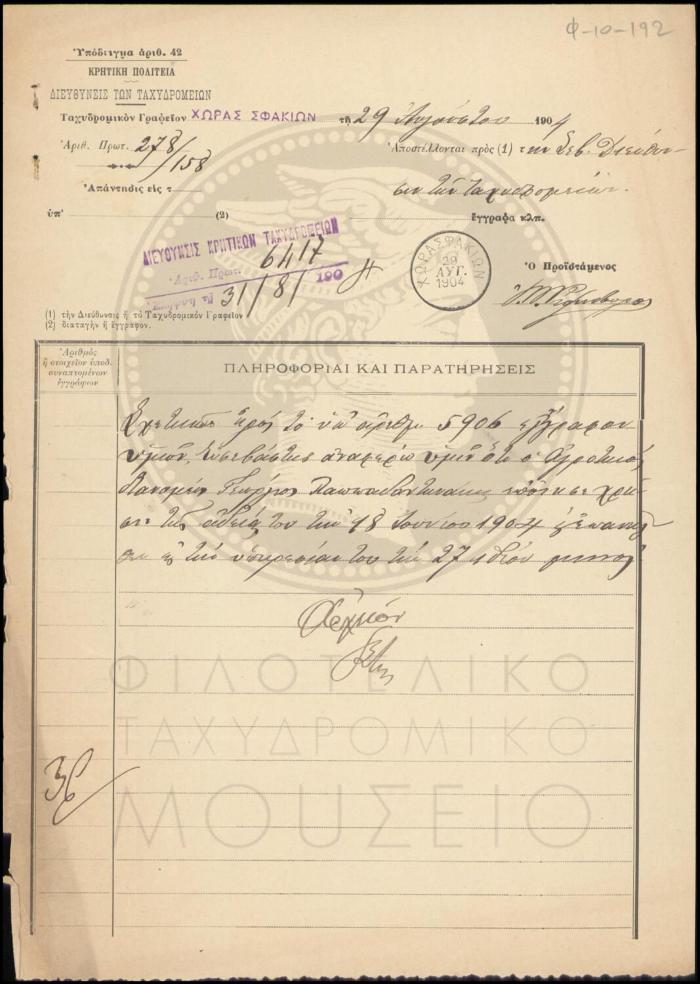 Φ-10-192
Ὑπόδειγμα ἀριθ. 42
ΚΡΗΤΙΚΗ ΠΟΛΙΤΕΙΑ
ΔΙΕΥΘΥΝΣΙΣ ΤΩΝ ΤΑΧΥΔΡΟΜΕΙΩΝ
Ταχυδρομικὸν Γραφεῖον ΧΩΡΑΣ ΣΦΑΚΙΩΝ τῇ 29 Αὐγούστου 1904
Ἀριθ. Πρωτ. 278/158
Ἀποστέλλονται πρὸς (1) την Σεβ. Διεύθυν-
σιν τῶν ταχυδρομείων.
Ἀπάντησις εἰς τ
ὑπ' (2) ἔγγραφα κλπ.
ΔΙΕΥΘΥΝΣΙΣ ΚΡΗΤΙΚΩΝ ΤΑΧΥΔΡΟΜΕΙΩΝ
Ἀριθ. Πρωτ. 6417
31/8/1904
ΧΩΡΑ ΣΦΑΚΙΩΝ
29
ΑΥΓ.
1904
Ὁ Προϊστάμενος
(1) τὴν Διεύθυνσιν ἢ τὸ Ταχυδρομικὸν Γραφεῖον
(2) διαταγὴν ἢ ἔγγραφον.
Ἀριθμὸς
ἢ στοιχεῖον ὑποδ.
συναπτομένων
ἐγγράφων
ΠΛΗΡΟΦΟΡΙΑΙ ΚΑΙ ΠΑΡΑΤΗΡΗΣΕΙΣ
Σχετικῶς πρὸς τὸ ὑπ' ἀριθ. 5906 ἔγγραφον
ὑμῶν, εὐσεβάστως ἀναφέρω ὑμῖν ὅτι ὁ ἀγροτικὸς
διανομεὺς Γεώργιος ἔκαμε χρῆ-
σιν τῆς ἀδείας του τὴν 18 Ἰουνίου 1904
τὴν ὑπηρεσίαν του τὴν 27 ἰδίου μηνὸς
36
ΦΙΛΟΤΕΛΙΚΟ
ΤΑΧΥΔΡΟΜΙΚΟ
ΜΟΥΣΕΙΟ